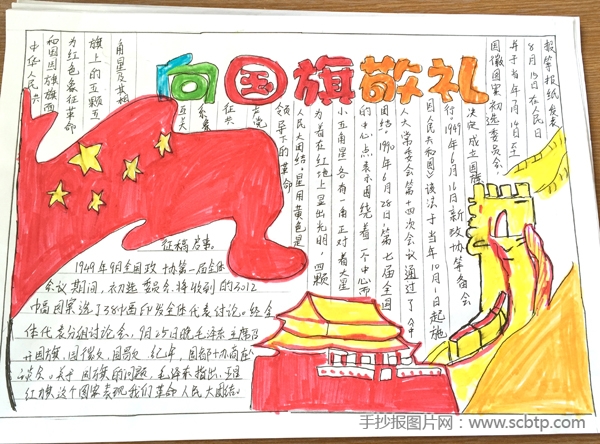 向国旗敬礼
中华人民共
和国国旗旗面
为红色象征革命
旗上的五颗五
角星及其相
互关
系象
征共
产党
领导下的革命
人民大团结,星用黄色是
为着在红地上显出光明,四颗
小五角星各有一角正对着大星
的中心点表示围绕着一个中心而
团结。1990年6月28日第七届全国
人大常委会第十四次会议通过了《中
国人民共和国》该法于当年10月1日起施
行。1949年6月16日新政协筹备会
决定成立国旗
国徽图案初选委员会,
并于当年7月14日至
8月15日在人民日
报等报纸发表
征稿启事。
1949年9月全国政协第一届全体
会议期间,初选委员会将收到的2012
幅图案选了38幅印发全体代表讨论。经全
体代表分组讨论会,9月25日晚毛泽东主席召
开国旗、国徽、国歌、纪年、国都于协商座
谈会。关于国旗的问题,毛泽东指出:五星
红旗这个图案表现我们革命人民大团结。
手抄报图片网:www.scbtp.com